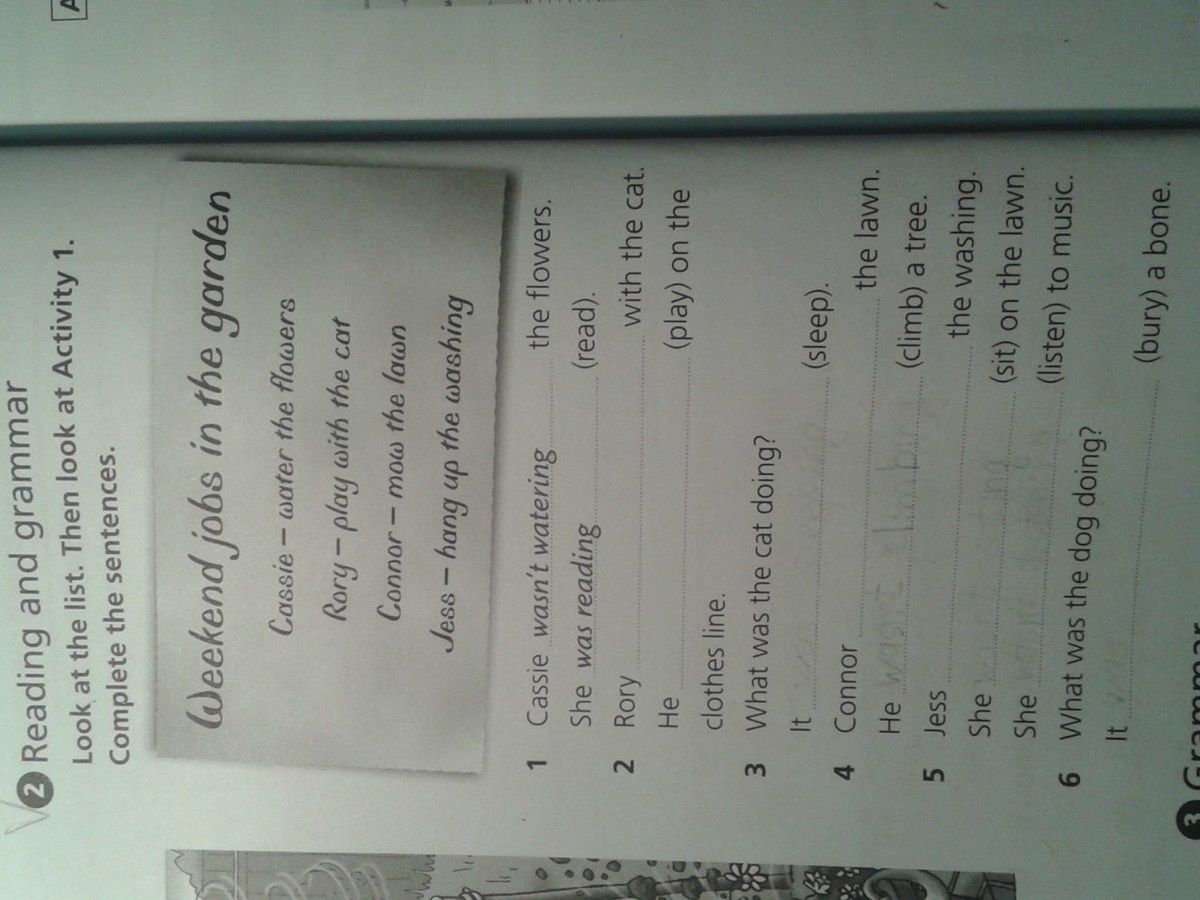 A
2 Reading and grammar
Look at the list. Then look at Activity 1.
Complete the sentences.
Weekend jobs in the garden
Cassie – water the flowers
Rory – play with the cat
Connor – mow the lawn
Jess – hang up the washing
1 Cassie wasn't watering the flowers.
She was reading (read).
2 Rory with the cat.
He (play) on the
clothes line.
3 What was the cat doing?
It (sleep).
4 Connor the lawn.
He (climb) a tree.
5 Jess the washing.
She (sit) on the lawn.
She (listen) to music.
6 What was the dog doing?
It (bury) a bone.
3 Grammar